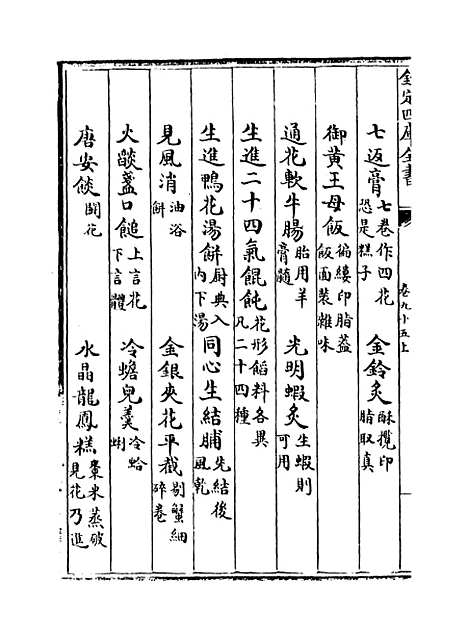 欽定四庫全書
卷九十五上
七返膏 七卷作四花恐是糕子 金鈴炙 酥攪印脂取真
御黄王母飯 徧縷印脂葢飯面裝雜味
通花軟牛腸 胎用羊膏髓 光明蝦炙 生蝦則可用
生進二十四氣餛飩 花形餡料各異凡二十四種
生進鴨花湯餅 厨典入内下湯 同心生結脯 先結後風乾
見風消 油浴餅 金銀夾花平截 剔蟹細碎卷
火燄盞口䭔 上言花下言體 冷蟾兒羹 冷蛤蜊
唐安餤 鬪花 水晶龍鳳糕 棗米蒸破見花乃進